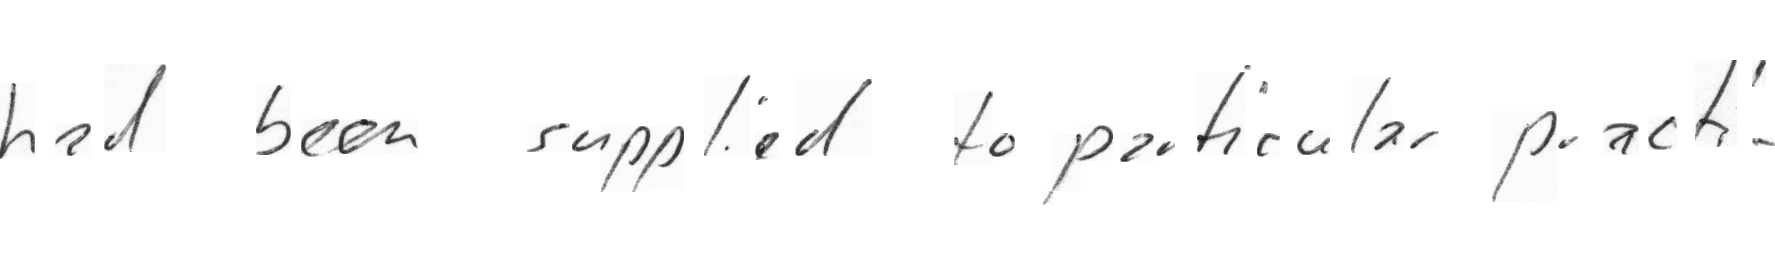 had been supplied to particular practi-